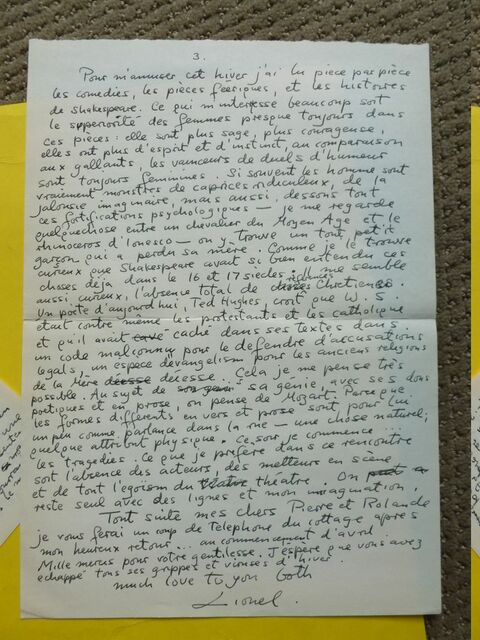 3.
Pour m'amuser cet hiver j'ai lu piece par pièce
les comedies, les pieces feeriques, et les histoires
de Shakespeare. Ce qui m'interesse beaucoup soit
le superiorité des femmes presque toujours dans
ces pièces: elle sont plus sage, plus courageuse,
elles ont plus d'esprit et d'instinct, au comparaison
aux gallants, les vanceurs de duels d'humeur
sont toujours feminines. Si souvent les homme sont
vraiment monstres de caprices ridiculeux, de la
jalousie imaginaire, mais aussi, dessons tout
ces fortifications psychologiques — je me regarde
quelquechose entre un chevalier du Moyen Age et le
rhinoceros d'Ionesco — on y trouve un tout petit
garçon qui a perdu sa mère. Comme je le trouve
curieux que Shakespeare avait si bien entendu ces
choses déja dans le 16 et 17 siècles. Il me semble
aussi curieux, l'absence total de Chretiens.
Un poete d'aujourd'hui, Ted Hughes, croit que W.S.
etait contre même les protestants et les catholique
et qu'il avait caché dans ses textes dans
un code malconnu pour le defendre d'accusations
legals, un espece d'evangelism pour les anciens religions
de la Mère décesse. Cela je me pense très
possible. Au sujet de sa genie, avec ses dons
poetiques et en prose, on pense de Mozart. Parceque
les formes differents en vers et prose sont pour lui
un peu comme parlance dans la rue — une chose naturel;
quelque attribut physique. Ce soir je commence ...
les tragedies. Ce que je prefère dans ce rencontre
sont l'absence des acteurs, des metteurs en scène
et de tout l'egoism du theatre. On
reste seul avec des lignes et mon imagination,
Tout suite mes chers Pierre et Rolande
je vous ferai un coup de Telephone du cottage après
mon heureux retour ... au commencement d'avril
Mille mercis pour votre gentilesse. J'espère que vous avez
echappé tous ses grippes et viruses d'hiver.
much love to you both
Lionel.